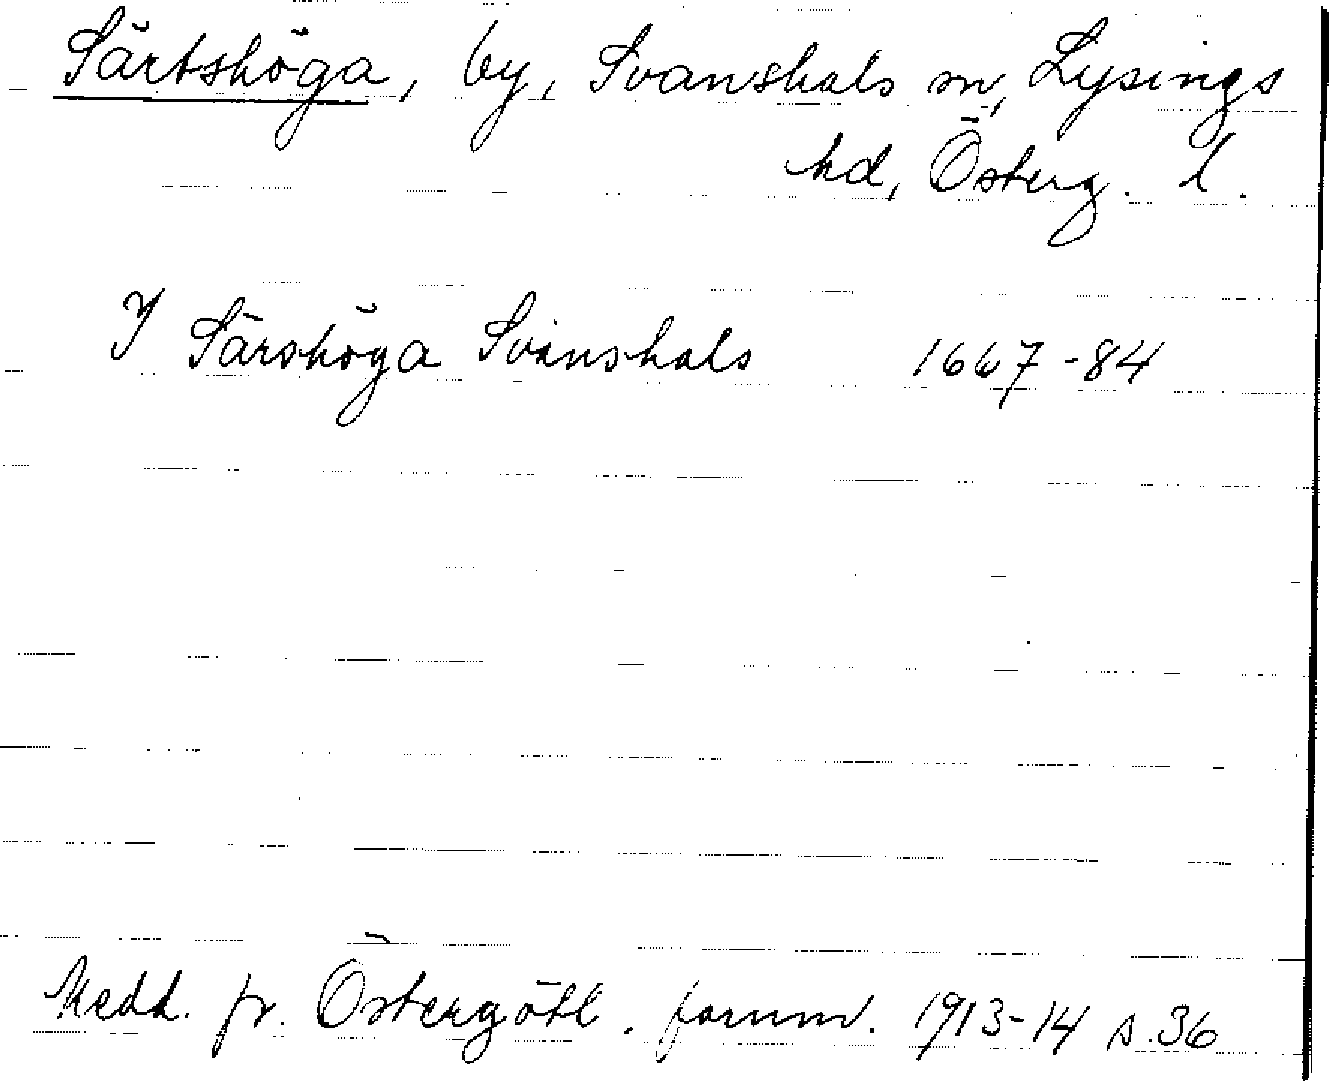 Särtshöga, by, Svanshals sn, Lysings
hd, Österg. l.
I Särshöga Svanshals 1667-84
Medd. fr. Östergötl. fornm. 1913-14 s.36